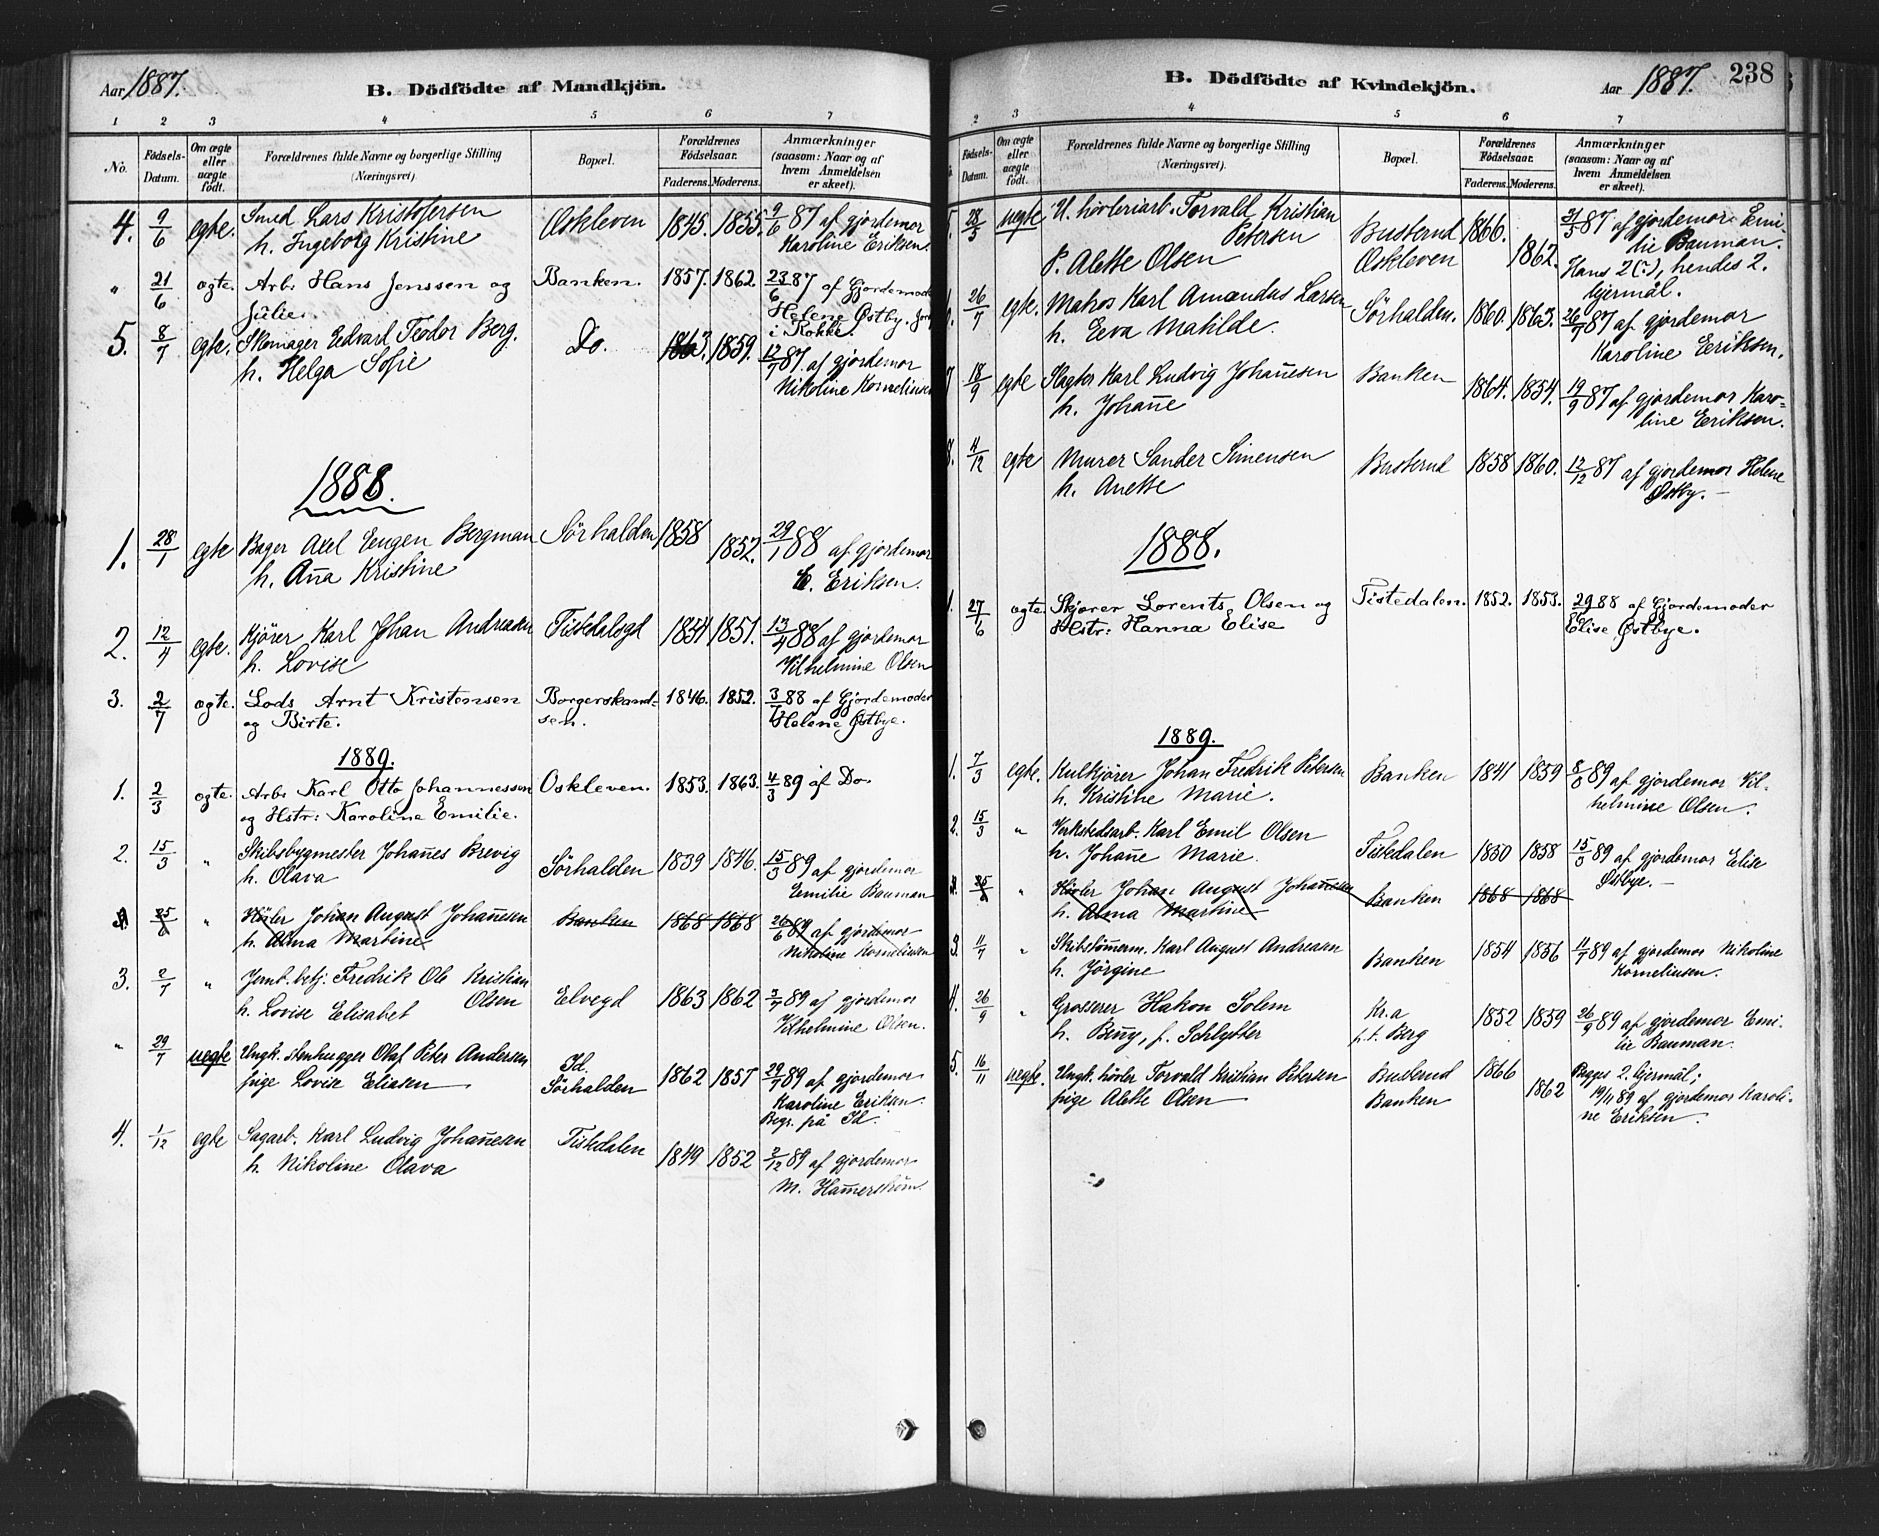 Aar 1887.
B. Dödfödte af Mandkjön.
1 2 3 4 5 6 7
No. Födsels-Datum. Om ægte eller uægte födt. Forældrenes fulde Navne og borgerlige Stilling (Næringsvei). Bopæl. Forældrenes Födselsaar. Faderens. Moderens. Anmærkninger (saasom: Naar og af hvem Anmeldelsen er skeet).
4. 9/6 egte. Smed Lars Kristofersen Oskleven 1845. 1855. 9/6 87 af gjordemor
h. Ingeborg Kristine Karoline Eriksen.
" 21/6 ægte. Arb. Hans Jenssen og Banken. 1857. 1862. 23/6 87 af Gjordemoder
Julie. Helene Østby.
i Rokke.
5. 8/7 egte. Skomager Edvard Teodor Berg. Do. 1863. 1859. 12/7 87 af gjordemor
h. Helga Sofie Nikoline Korneliusen
1888.
1. 28/1 egte Bager Axel Eugen Bergman Sörhalden 1858 1852. 29/1 88 af gjordemor
h. Ana Kristine E. Eriksen.
2. 12/4 egte. Kjörer Karl Johan Andreasen Tistedalsgd 1854 1851. 13/4 88 af gjordemor
h. Lovise Vilhelmine Olsen
3. 2/7 ægte. Lods Arnt Kristensen Borgerskand- 1846. 1852. 3/7 88 af Gjordemoder
og Birte. sen. Helene Østbye.
1889.
1. 2/3 ægte. Arb. Karl Otto Johannessen Oskleven. 1853. 1863. 4/3 89 af Do.
og Hstr: Karoline Emilie.
2. 15/3 " Skibsbygmester Johanes Brevig Sörhalden 1839 1846. 15/3 89 af gjordemor
h. Olava Emilie Bauman
3 25/6 " Hövler Johan August Johanesen Banken 1868 1868 26/6 89 af gjordemor
h. Alma Martine Nikoline Korneliusen
3. 2/7 " Jernb. betj. Fredrik Ole Kristian Elvegd 1863 1862 3/7 89 af gjordemor
h. Lovise Elisabet Olsen Vilhelmine Olsen.
" 29/7 uegte Ungk. stenhugger Olaf Peter Andersen Id. 1862 1857 29/7 89 af gjordemor
pige Lovise Eliasen Sörhalden Karoline Eriksen.
Begr. på Id.
4. 1/12 egte Sagarb. Karl Ludvig Johanesen Tistedalen 1849 1852 2/12 89 af gjordemor
h. Nikoline Olava M. Hamerström
B. Dödfödte af Kvindekjön. Aar 1887. 238
2 3 4 5 6 7
Födsels-Datum. Om ægte eller uægte födt. Forældrenes fulde Navne og borgerlige Stilling (Næringsvei). Bopæl. Forældrenes Födselsaar. Faderens. Moderens. Anmærkninger (saasom: Naar og af hvem Anmeldelsen er skeet).
5. 28/3 uegte U. hövleriarb. Torvald Kristian Busterud 1866. 31/3 87 af gjordemor Emi-
Petersen lie Bauman.
P. Alette Olsen Oskleven 1862. Hans 2(?), hendes 2.
lejermål.
6. 26/7 egte. Matros Karl Amandus Larsen Sörhalden. 1860. 1863. 26/7 87 af gjordemor
h. Eeva Matilde. Karoline Eriksen.
7 18/9 egte Slagter Karl Ludvig Johanesen Banken 1864. 1854. 19/9 87 af gjordemor Karo-
h. Johane line Eriksen.
8. 11/12 egte Murer Sander Simensen Busterud 1858 1860. 12/12 87 af gjordemor Helene
h. Anette Østby.
1888.
1. 27/6 ægte. Skjærer Lorents Olsen og Tistedalen. 1852. 1853. 29/6 88 af Gjordemoder
Hstr: Hanna Elise Elise Østbye.
1889.
1. 7/3 egte. Kulkjörer Johan Fredrik Petersen Banken 1841 1859 8/3 89 af gjordemor Vil-
h. Kristine Marie. helmine Olsen.
2. 15/3 " Verkstedsarb. Karl Emil Olsen Tistedalen 1850 1858 15/3 89 af gjordemor Elise
h. Johane Marie. Østbye.
3. 25/6 " Hövler Johan August Johanesen Banken 1868 1868
h. Alma Martine
3. 11/7 " Skibstömerm. Karl August Andreasen Banken 1854 1856 11/7 89 af gjordemor Nikoline
h. Jörgine Korneliusen.
4. 26/9 " Grosserer Hakon Solem Kr.a 1852 1859 26/9 89 af gjordemor Emi-
h. Beng, f. Schlytter p.t. Berg lie Bauman.
5. 16/11 uegte. Ungk. hövler Torvald Kristian Petersen Busterud 1866 Begges 2. lejermål;
pige Alette Olsen Banken 1862 19/11 89 af gjordemor Karoli-
ne Eriksen.